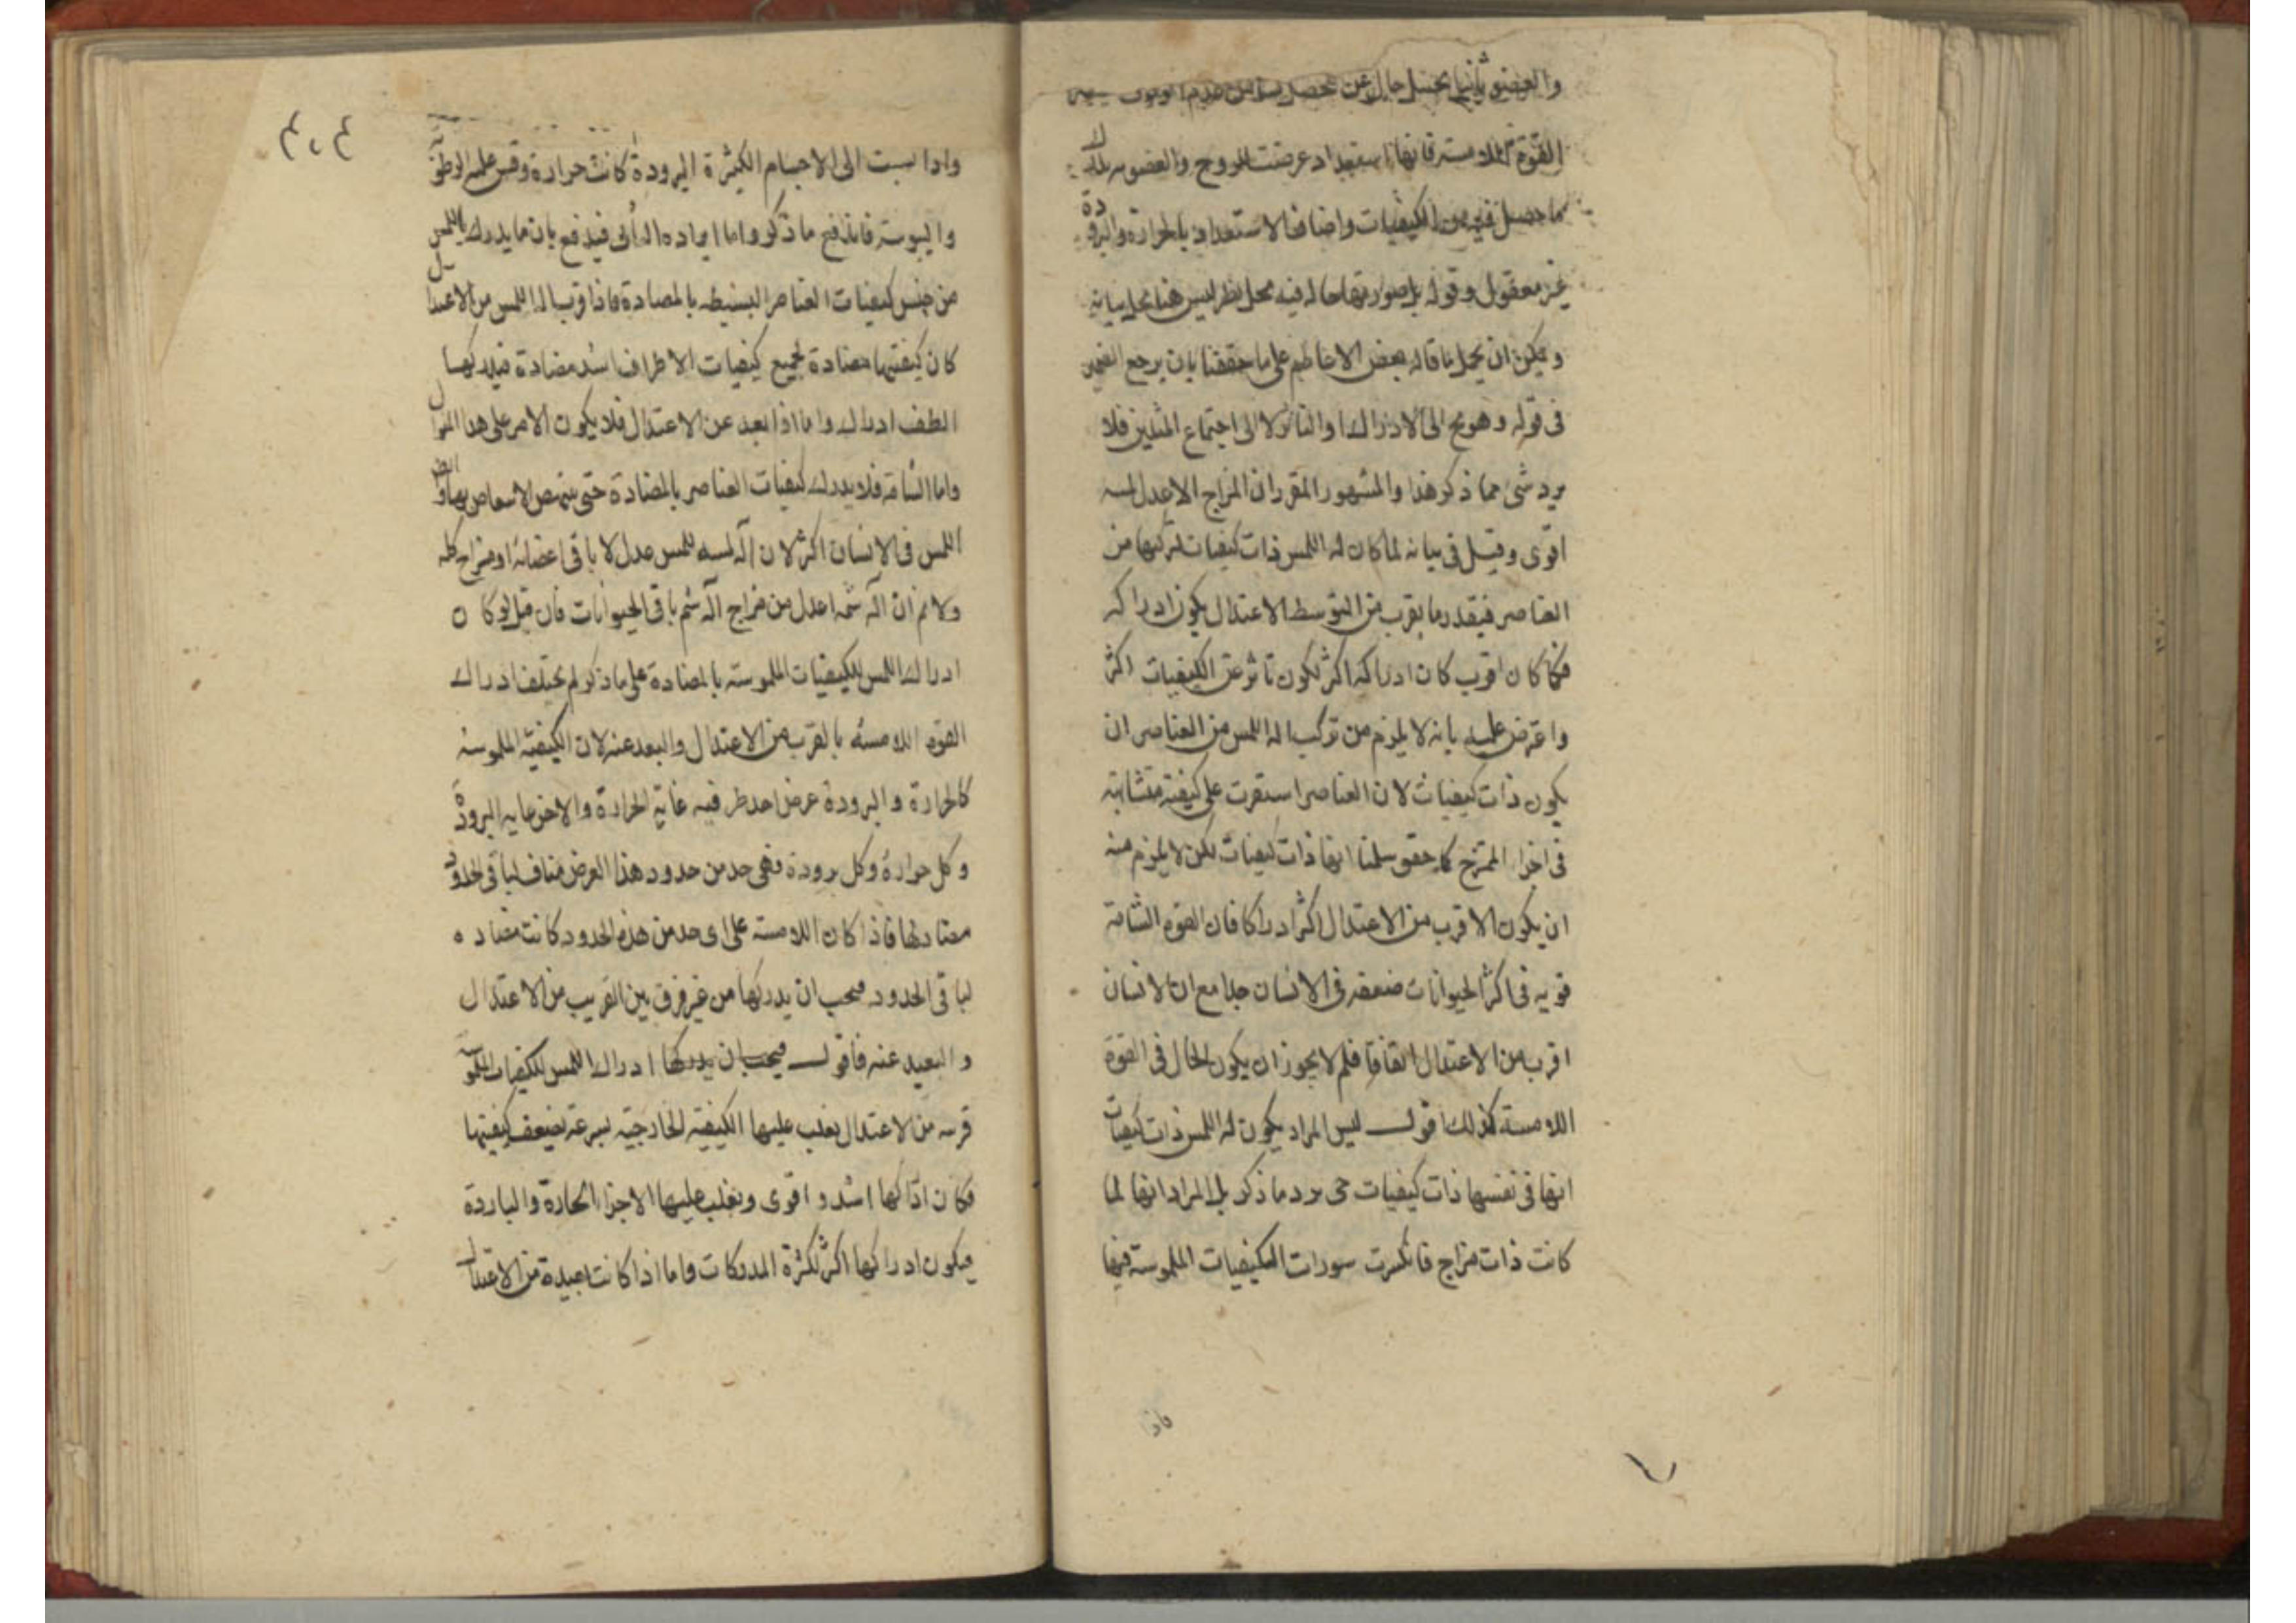 والعضو ثانيا بحسب حال عن
القوة اللامسة فانها استعداد عرضت للروح والعضو
ما حصل فيه من الكيفيات واضافة الاستعداد بالحرارة والبرودة
غير معقول وقوله بل صورتها حاله فيه محل نظر ليس هنا محل بيانه
ويمكن ان يحمل ما قاله بعض الافاضل على ما حققنا بان يرجع الضمير
فى قوله وهو مح الى الادراك او التاثر لا الى اجتماع المثلين فلا
يرد شئ مما ذكر هذا والمشهور المقرر ان المزاج الاعدل لمسه
اقوى وقيل فى بيانه لما كان اله اللمس ذات كيفيات لتركبها من
العناصر فبقدر ما يقرب من التوسط الاعتدال يكون ادراكه
فكما كان اقرب كان ادراكه اكثر لكون تاثره عن الكيفيات اكثر
واعترض عليه بانه لا يلزم من تركب اله اللمس من العناصر ان
يكون ذات كيفيات لان العناصر استقرت على كيفية متشابهة
فى اجزاء الممتزج كما حقق سلمنا انها ذات كيفيات لكن لا يلزم منه
ان يكون الاقرب من الاعتدال اكثر ادراكا فان القوة الشامة
قوية فى اكثر الحيوانات ضعيفة فى الانسان جدا مع ان الانسان
اقرب من الاعتدال اتفاقا فلم لا يجوز ان يكون الحال فى القوة
اللامسة كذلك اقول ليس المراد بكون اله اللمس ذات كيفيات
انها فى نفسها ذات كيفيات حتى يرد ما ذكر بل المراد انها لما
كانت ذات مزاج فانكسرت سورات الكيفيات الملموسة فيها
فاذا
واذا نسبت الى الاجسام الكثيرة البرودة كانت حرارة وقس عليه الرطوبة
واليبوسة فاندفع ما ذكر واما ايراده الثانى فيندفع بان ما يدرك باللمس
من جنس كيفيات العناصر البسيطه بالمضادة فاذا قرب اله اللمس من الاعتدال
كان كيفيتها مضادة لجميع كيفيات الاطراف اشد مضادة فيدركها
الطف ادراك واما اذا بعد عن الاعتدال فلا يكون الامر على هذا المنوال
واما الشامة فلا يدرك كيفيات العناصر بالمضادة حتى
اللمس فى الانسان اكثر لان آلة لمسه اعدل لا باقى اعضائه او مزاج كله
ولا نم ان آلة شمه اعدل من مزاج آلة شم باقى الحيوانات فان قيل لو كان
ادراك اللمس للكيفيات الملموسة بالمضادة على ما ذكر لم يختلف ادراك
القوة اللامسة بالقرب من الاعتدال والبعد عنه لان الكيفية الملموسة
كالحرارة والبرودة عرض احد طرفيه غاية الحرارة والاخر غاية البرودة
وكل حرارة وكل برودة فهى حد من حدود هذا العرض مناف لباقى الحدود
مضاد لها فاذا كان اللامسة على اى حد من هذه الحدود كانت مضاده
لباقى الحدود فيجب ان يدركها من غير فرق بين القريب من الاعتدال
والبعيد عنه فاقول فيجب ان يدركها ادراك اللمس للكيفيات الملموسة
قربه من الاعتدال يغلب عليها الكيفية الخارجية بسرعة لضعف كيفيتها
فكان ادراكها اشد واقوى ويغلب عليها الاجزاء الحارة والباردة
فيكون ادراكها اكثر لكثرة المدركات واما اذا كانت بعيدة من الاعتدال